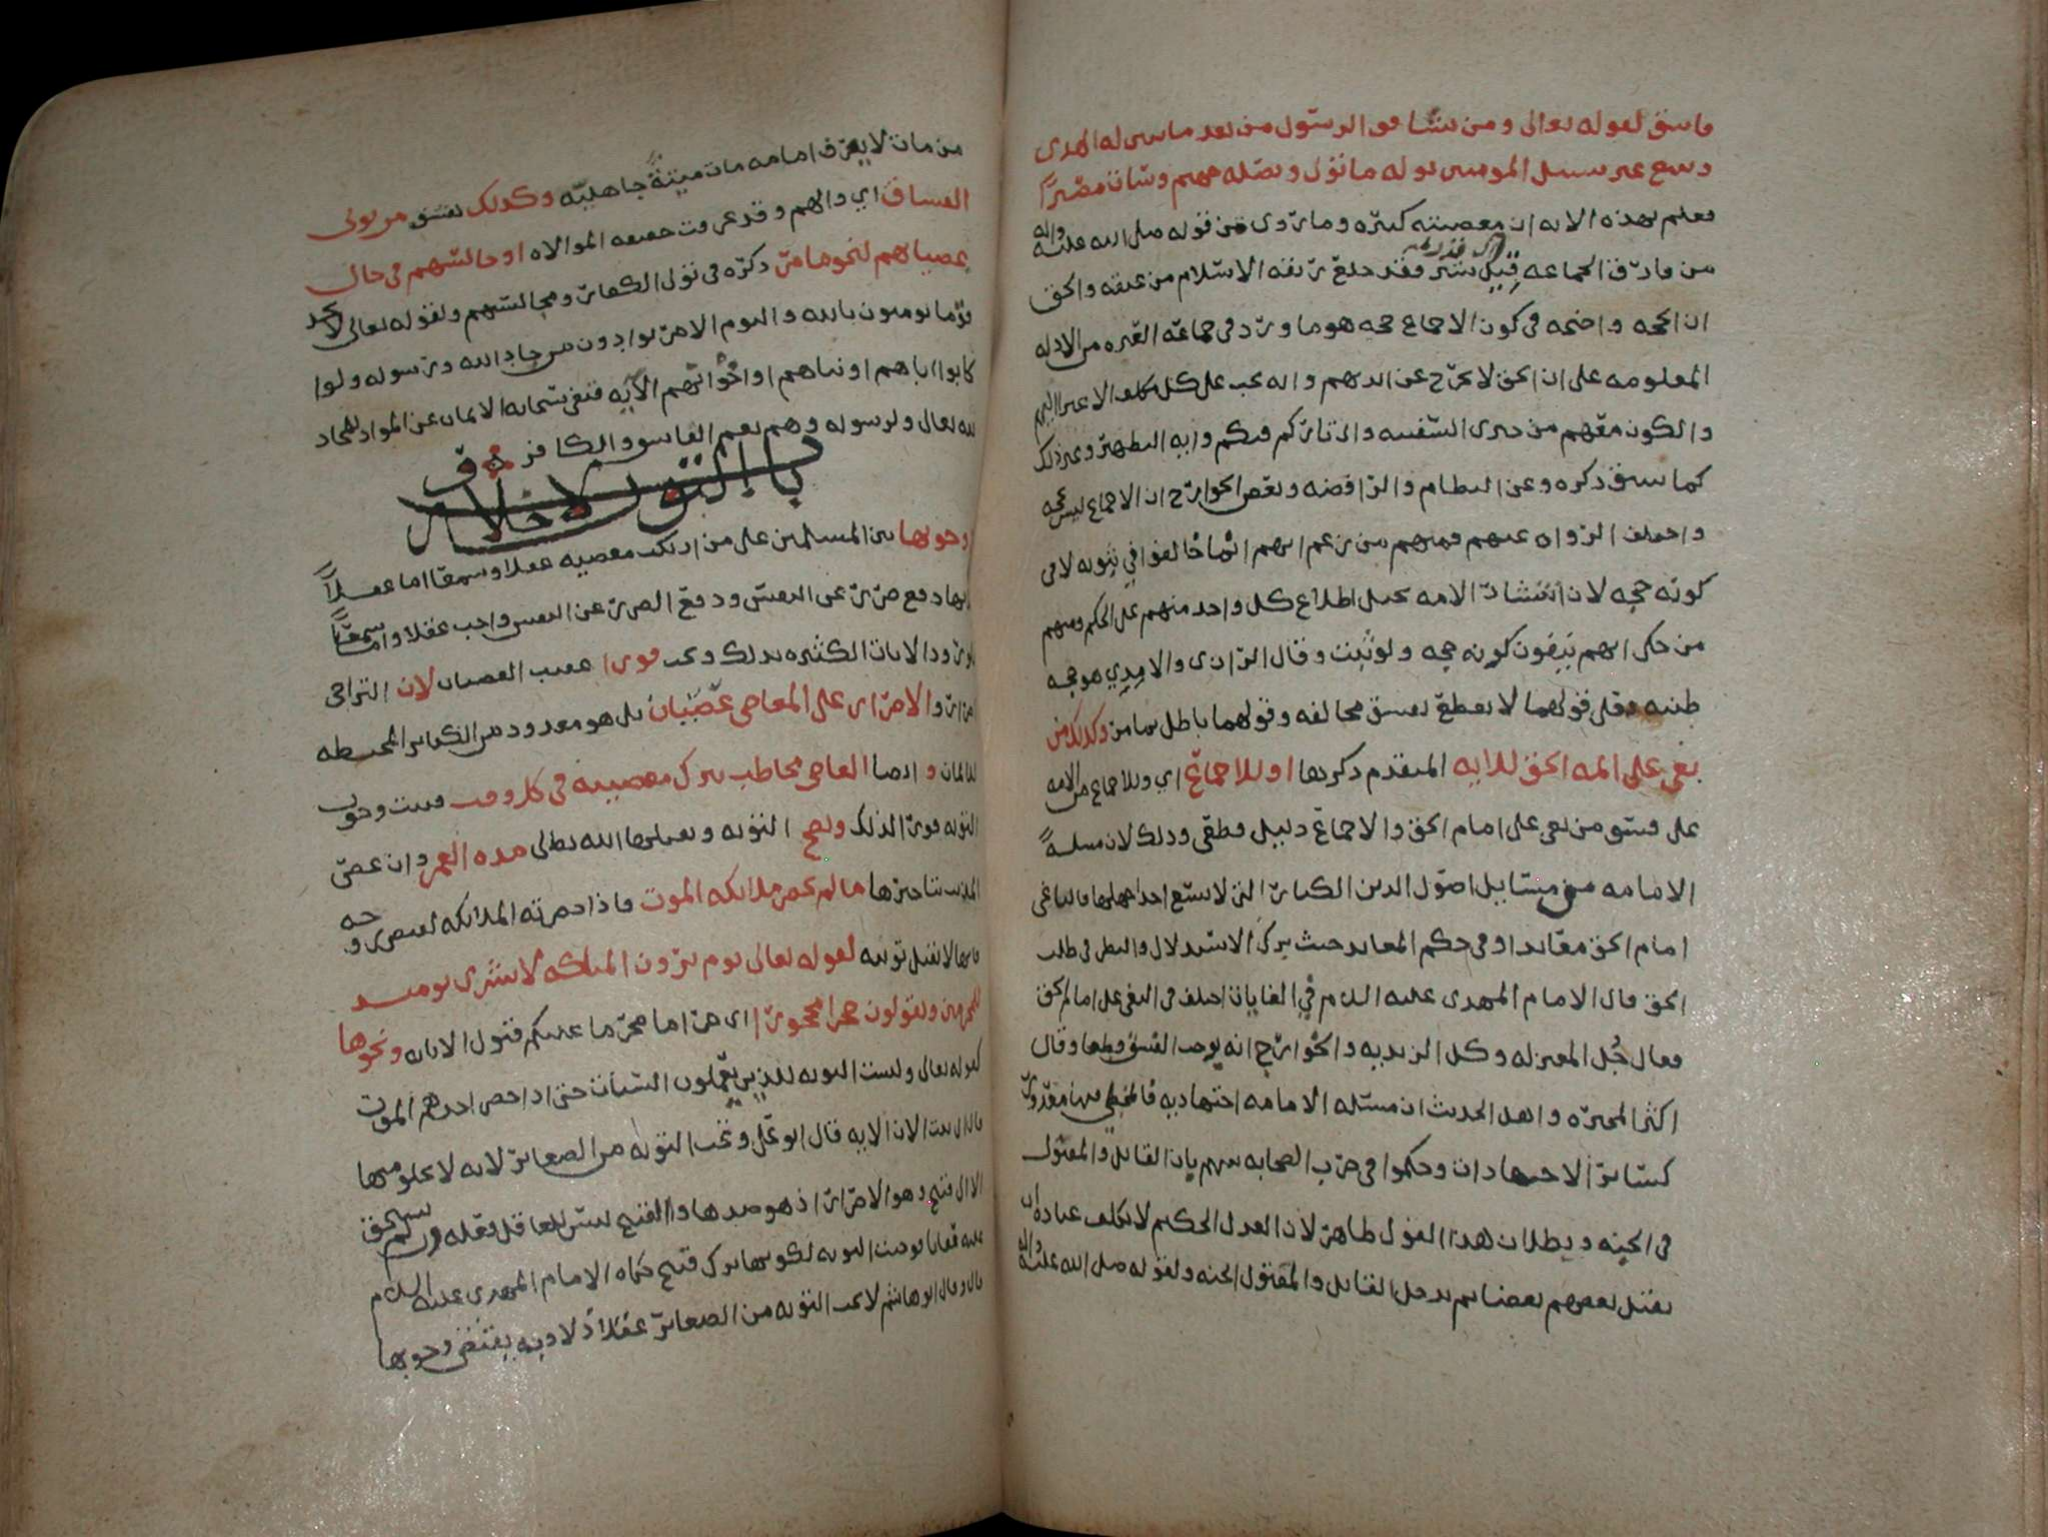 فاسق لقوله تعالى ومن يشاقق الرسول من بعد ما تبين له الهدى
ويتبع غير سبيل المؤمنين نوله ما تولى ونصله جهنم وساءت مصيرا
فعلم بهذه الايه ان معصيته كبيره وما روي من قوله صلى الله عليه واله
من فارق الجماعه قيد شبر فقد خلع ربقه الاسلام من عنقه والحق
ان الحجه واضحه في كون الاجماع حجه هو ما ورد في جماعه العتره من الادله
المعلومه على ان الحق لا يخرج عن ايديهم وانه يجب على كل مكلف الاعتزا اليهم
والكون معهم من خبرى السفينه واني تارك فيكم وايه التطهير وغير ذلك
كما سبق ذكره وعن النظام والرافضه وبعض الخوارج ان الاجماع ليس بحجه
واختلف الرواه عنهم فمنهم من زعم انهم انما خالفوا في ثبوته لا في
كونه حجه لان انتشار الامه يحيل اطلاع كل واحد منهم على الحكم ومنهم
من حكى انهم ينفون كونه حجه ولو ثبت وقال الرازي والامدي هو حجه
ظنيه فعلى قولهما لا يقطع بفسق مخالفه وقولهما باطل بما مر وكذلك من
بغى على ائمه الحق للايه المتقدم ذكرها او للاجماع اي وللاجماع من الامه
على فسق من بغى على امام الحق والاجماع دليل قطعي وذلك لان مسئله
الامامه من مسايل اصول الدين الكبار التي لا يسع احدا جهلها فالباغي على
امام الحق معاند او في حكم المعاند حيث ترك الاستدلال والنظر في طلب
الحق قال الامام المهدي عليه السلام في الغايات اختلف في البغي على امام الحق
فقال جُل المعتزله وكل الزيديه والخوارج انه يوجب الفسق قطعا وقال
اكثر المجبره واهل الحديث ان مسئله الامامه اجتهاديه فالمخطي فيها معذور
كسائر الاجتهادات وحكموا في حرب الصحابه بينهم بان القاتل والمقتول
في الجنه وبطلان هذا القول ظاهر لان العدل الحكيم لا يكلف عباده ان
يقتل بعضهم بعضا ثم يدخل القاتل والمقتول الجنه ولقوله صلى الله عليه واله
من مات لا يعرف امامه مات ميتةً جاهليه وكذلك يفسق من تولى
الفساق اي والاهم وقد عرفت حقيقه الموالاه او جالسهم في حال
عصيانهم لنحو ما مر ذكره في تولي الكفار ومجالستهم ولقوله تعالى لا تجد
قوما يومنون بالله واليوم الاخر يوادون من حاد الله ورسوله ولو
كانوا اباهم او ابناهم او اخوانهم الايه فنفى سبحانه الايمان عن المواد لمن حاد
لله تعالى ولرسوله وهم يعم الفاسق والكافر
باب التوبه
ووجوبها بين المسلمين على من ارتكب معصيه عقلا وسمعا اما عقلاً
فانها دفع ضرر عن النفس ودفع الضرر عن النفس واجب عقلا واما سمعا
فلورود الايات الكثيره بذلك وتجب فورا عقيب العصيان لان التراخي
اصرار والاصرار على المعاصي عصيان بل هو معدود من الكبائر المحبطه
للايمان وايضا العاصي مخاطب بترك معصيته في كل وقت فيثبت وجوب
التوبه فورا لذلك وتصح التوبه ويقبلها الله تعالى مده العمر وان عصى
المذنب بتاخيرها ما لم تحضر ملائكه الموت فاذا حضرته الملائكه لقبض روحه
فانها لا تقبل توبته لقوله تعالى يوم يرون الملائكه لا بشرى يومئذ
للمجرمين ويقولون حجرا محجورا اي حراما محرما عليكم قبول الانابه ونحوها
كقوله تعالى وليست التوبه للذين يعملون السيئات حتى اذا حضر احدهم الموت
قال اني تبت الان الايه قال ابو علي وتجب التوبه من الصغائر لانه لا يخلو منها
الا الى قبيح وهو الاصرار اذ هو ضدها والقبيح ليس للعاقل فعله وان لم يستحق
عليه عقابا فوجبت التوبه لكونها ترك قبيح حكاه الامام المهدي عليه السلام
قال وقال ابو هاشم لا تجب التوبه من الصغائر عقلا اذ لا وجه يقتضي وجوبها